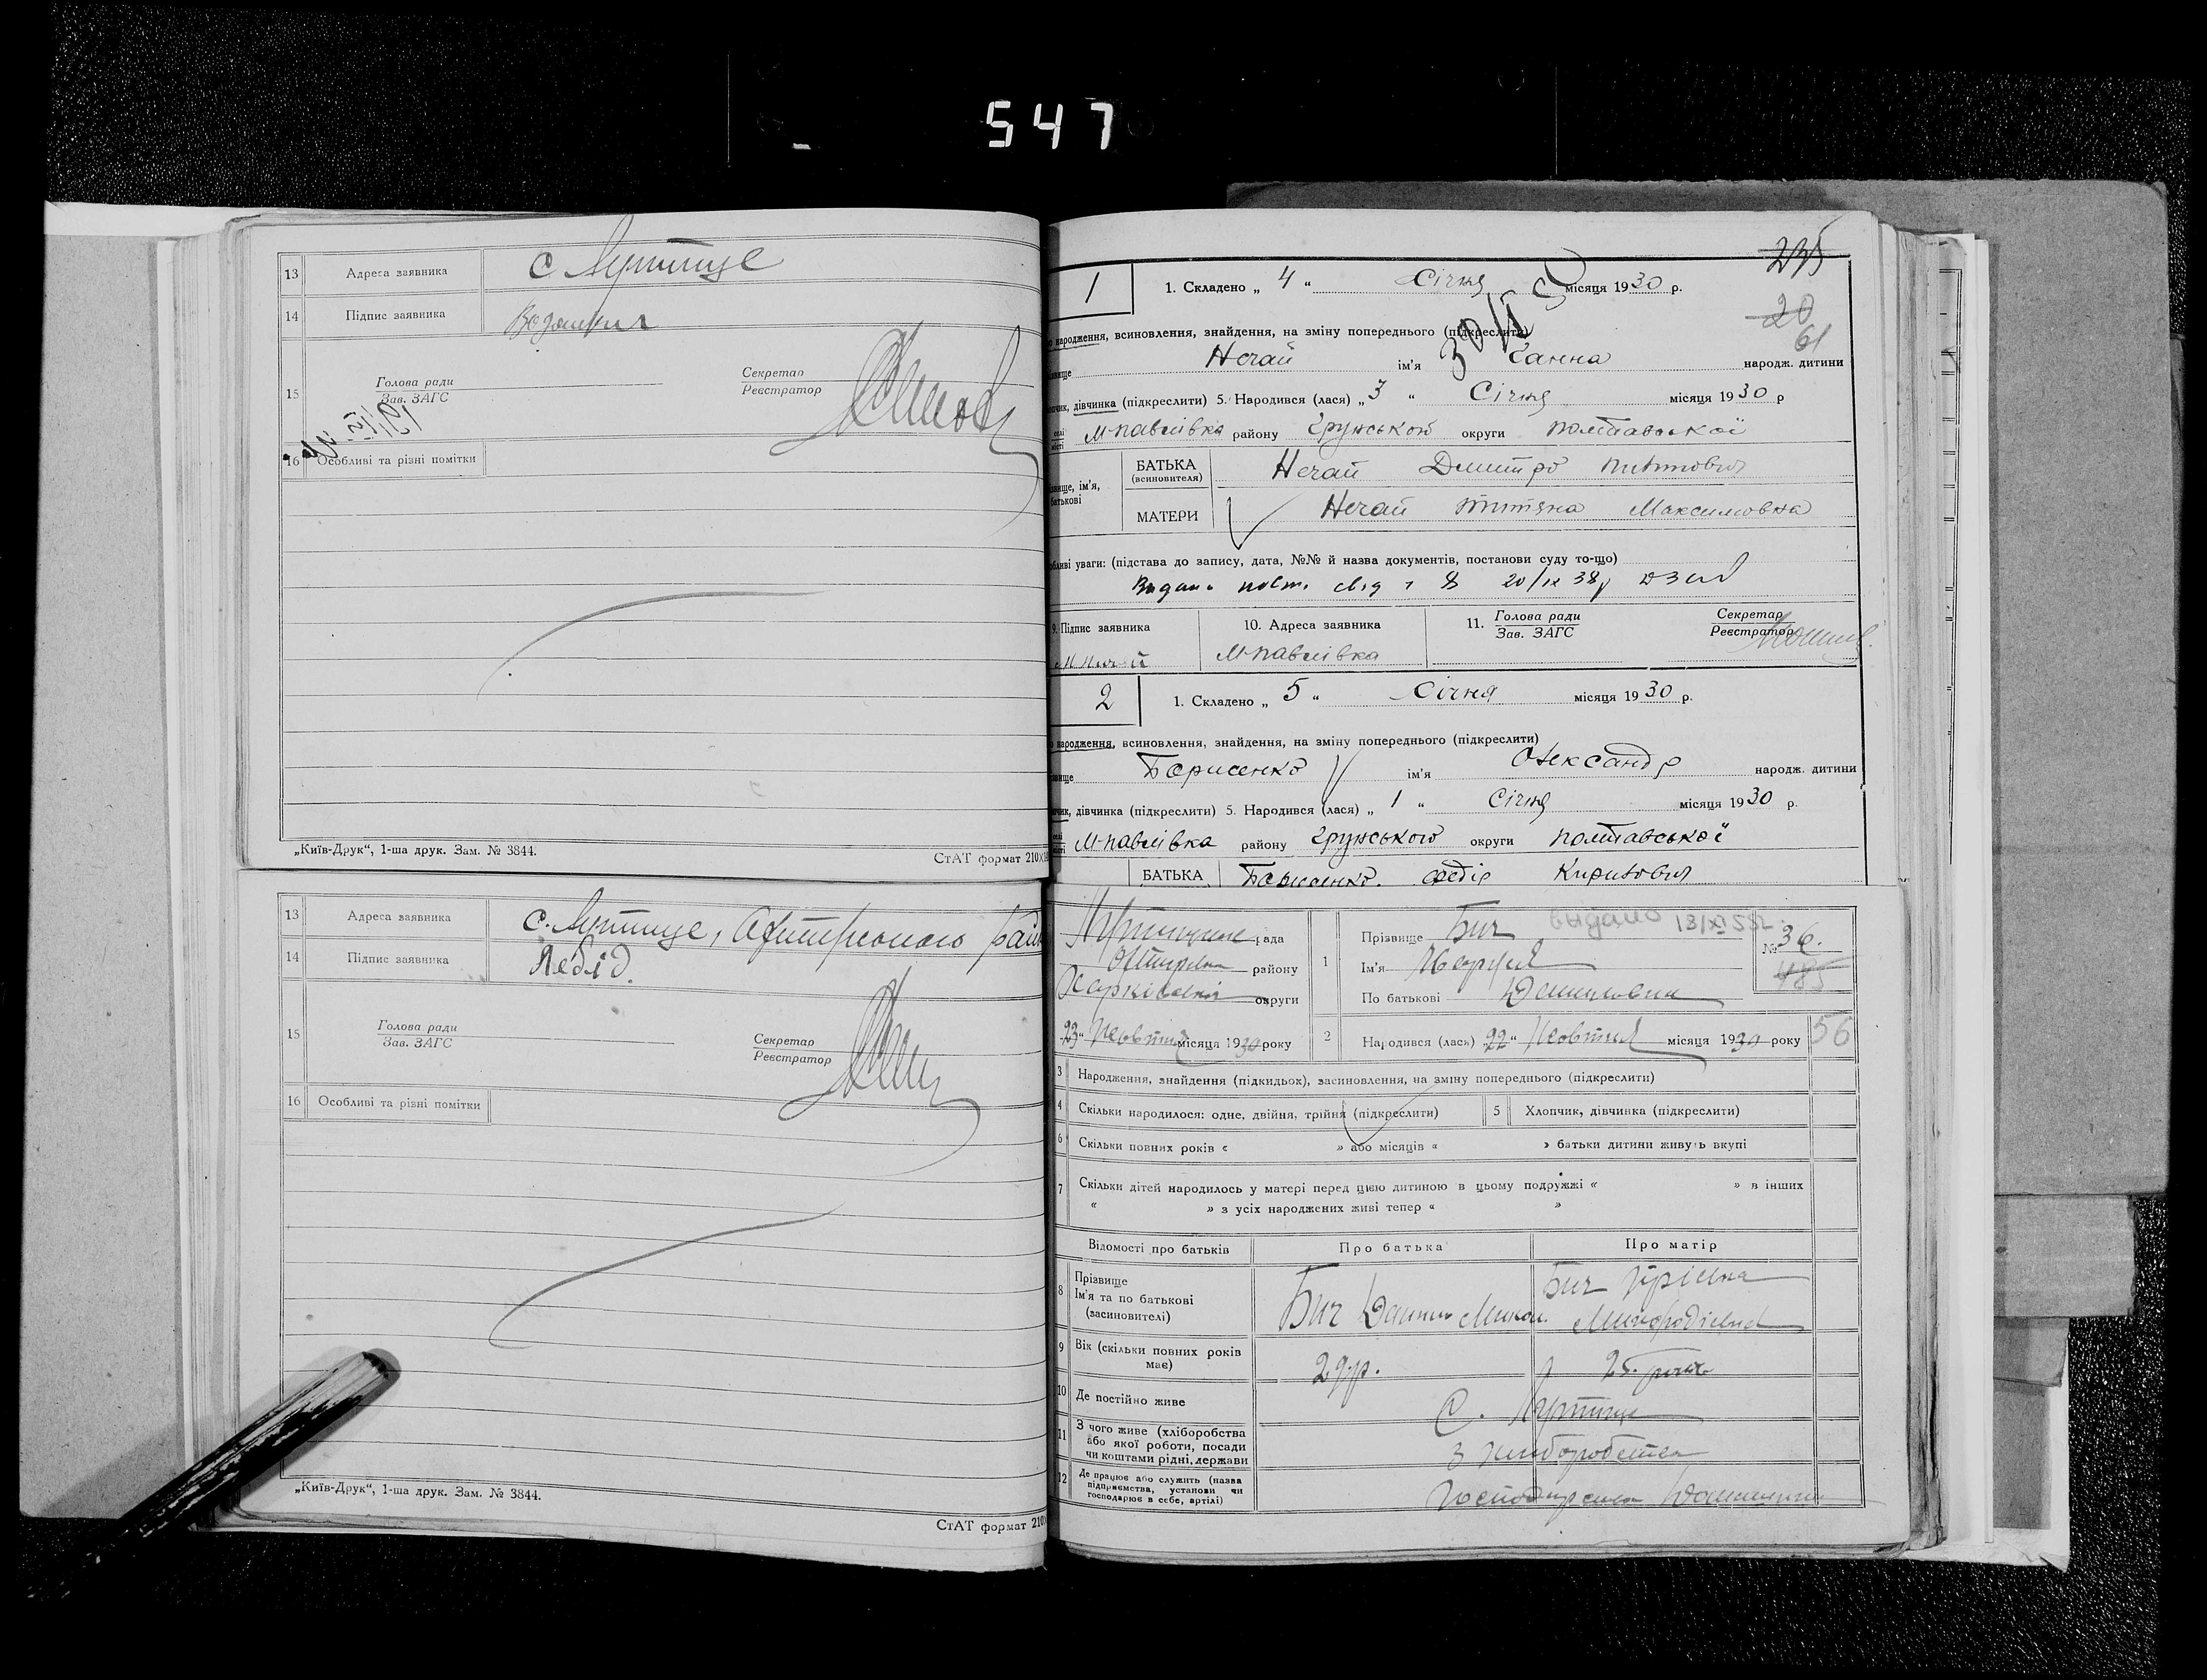 547
13 Адреса заявника с. Лутище
14 Підпис заявника
15 Голова ради
Зав. ЗАГС
Секретар
Реєстратор
16 Особливі та різні помітки
„Київ-Друк“, 1-ша друк. Зам. № 3844.
СтАТ формат 210
13 Адреса заявника с. Лутище,
14 Підпис заявника Лебід.
15 Голова ради
Зав. ЗАГС
Секретар
Реєстратор
16 Особливі та різні помітки
„Київ-Друк“, 1-ша друк. Зам. № 3844.
СтАТ формат 210
235
20
61
1 1. Складено „ 4 “ Січня місяця 1930 р.
народження, всиновлення, знайдення, на зміну попереднього (підкреслити)
Нечай ім'я Ганна народж. дитини
дівчинка (підкреслити) 5. Народився (лася) „ 3 “ Січня місяця 1930 р
М-павлівка району Грунського округи полтавської
БАТЬКА
(всиновителя)
Нечай Дмитро
ім'я,
МАТЕРИ Нечай Максимовна
уваги: (підстава до запису, дата, №№ й назва документів, постанови суду то-що)
20/IX 38
9. Підпис заявника 10. Адреса заявника 11. Голова ради
Зав. ЗАГС
Секретар
Реєстратор
М-павлівка
2 1. Складено „ 5 “ Січня місяця 1930 р.
народження, всиновлення, знайдення, на зміну попереднього (підкреслити)
Борисенко ім'я Олександр народж. дитини
дівчинка (підкреслити) 5. Народився (лася) „ 1 “ Січня місяця 1930 р.
М-павлівка району Грунського округи полтавської
БАТЬКА Борисенко Федір Кирилович
рада
району
округи
23 “ Жовтня місяця 1930 року
1 Прізвище Бич
Ім'я Марфа
По батькові
выдано 13/XI 55
№ 36.
485
2 Народився (лася) „22“ Жовтня місяця 1930 року 56
3 Народження, знайдення (підкидьох), засиновлення, на зміну попереднього (підкреслити)
4 Скільки народилося: одне, двійня, трійня (підкреслити) 5 Хлопчик, дівчинка (підкреслити)
6 Скільки повних років « » або місяців « » батьки дитини живуть вкупі
7 Скільки дітей народилось у матері перед цією дитиною в цьому подружжі « » в інших
« » з усіх народжених живі тепер « »
Відомості про батьків Про батька Про матір
8 Прізвище
Ім'я та по батькові
(засиновителі)
Бич Данило Микол.
Бич
9 Вік (скільки повних років
має)
29 р. 25
10 Де постійно живе с. Лутище
11 З чого живе (хліборобства
або якої роботи, посади
чи коштами рідні, держави
з хліборобства
12 Де працює або служить (назва
підприємства, установи чи
господарює в себе, артілі)